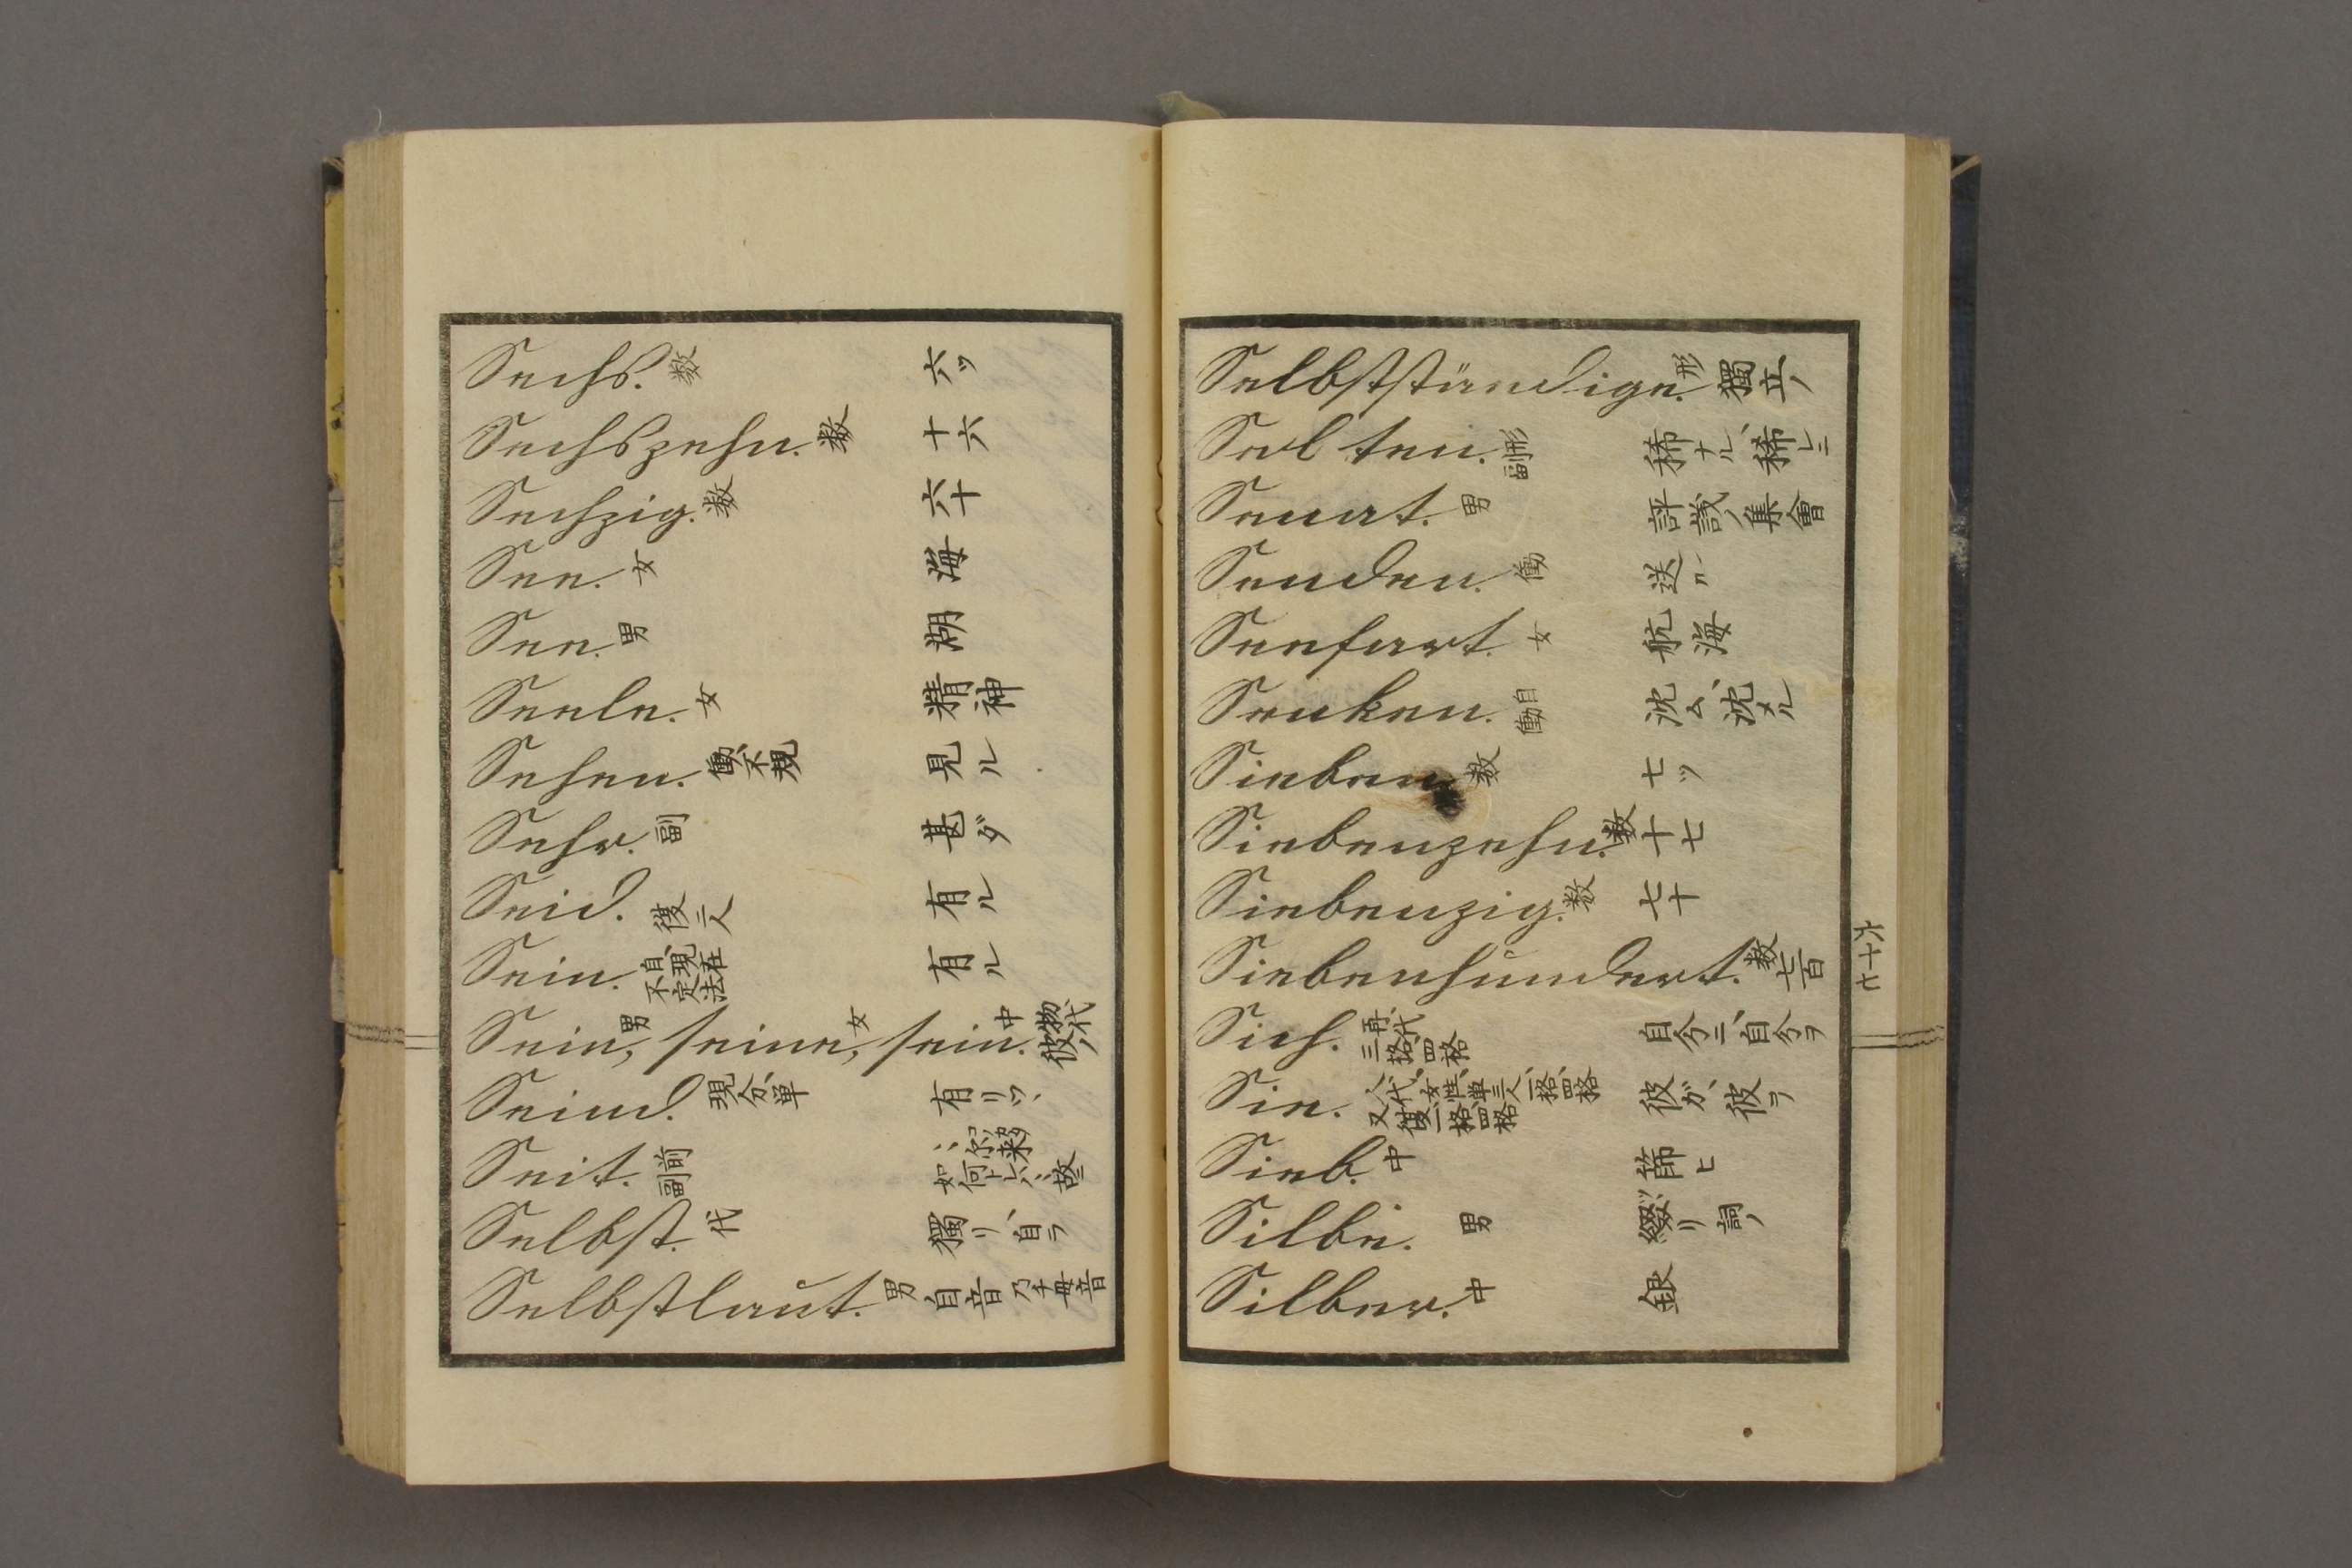 Sechs. 数 六ッ
Sechszehn. 数 十六
Sechzig. 数 六十
See. 女 海
See. 男 湖
Seele. 女 精神
Sehen. 働、不規 見ル
Sehr. 副 甚ダ
Seid. 復二人 有ル
Sein. 自、現在 不定法 有ル
Sein, 男 seine, 女 sein. 中 物代 彼ノ
Seind. 現分、単 有リツヽ
Seit. 前 副 如何トナレバ 故ニ
Selbst. 代 獨リ、自ラ
Selbstlaut. 男 自音 乃チ母音
Selbstständige. 形 獨立ノ
Selten. 形 副 稀ナル、稀レニ
Senat. 男 評議ノ集會
Senden. 働 送ル
Seefart. 女 航海
Senken. 自 働 沈ム、沈メル
Sieben. 数 七ッ
Siebenzehn. 数 十七
Siebenzig. 数 七十
Siebenhundert. 数 七百
Sich. 再、代 三格、四格 自今ニ、自今ヲ
Sie. 人代、女性、単三人、一格、四格 又復、一格、四格 彼ガ、彼ヲ
Sieb. 中 篩ヒ
Silbe. 男 綴リ詞ノ
Silber. 中 銀
六十七